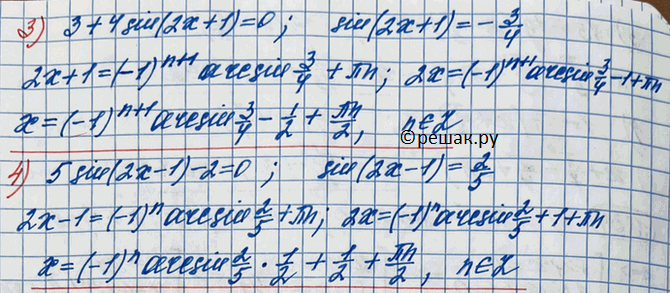 3) 3+4sin(2x+1)=0; sin(2x+1)=-3/4
2x+1=(-1)^{n+1} arcsin 3/4 + πn; 2x=(-1)^{n+1} arcsin 3/4 -1+πn
x=(-1)^{n+1} arcsin 3/4 - 1/2 + πn/2, n∈Z
©решак.ру
4) 5sin(2x-1)-2=0; sin(2x-1)=2/5
2x-1=(-1)^n arcsin 2/5 + πn; 2x=(-1)^n arcsin 2/5 +1+πn
x=(-1)^n arcsin 2/5 · 1/2 + 1/2 + πn/2, n∈Z